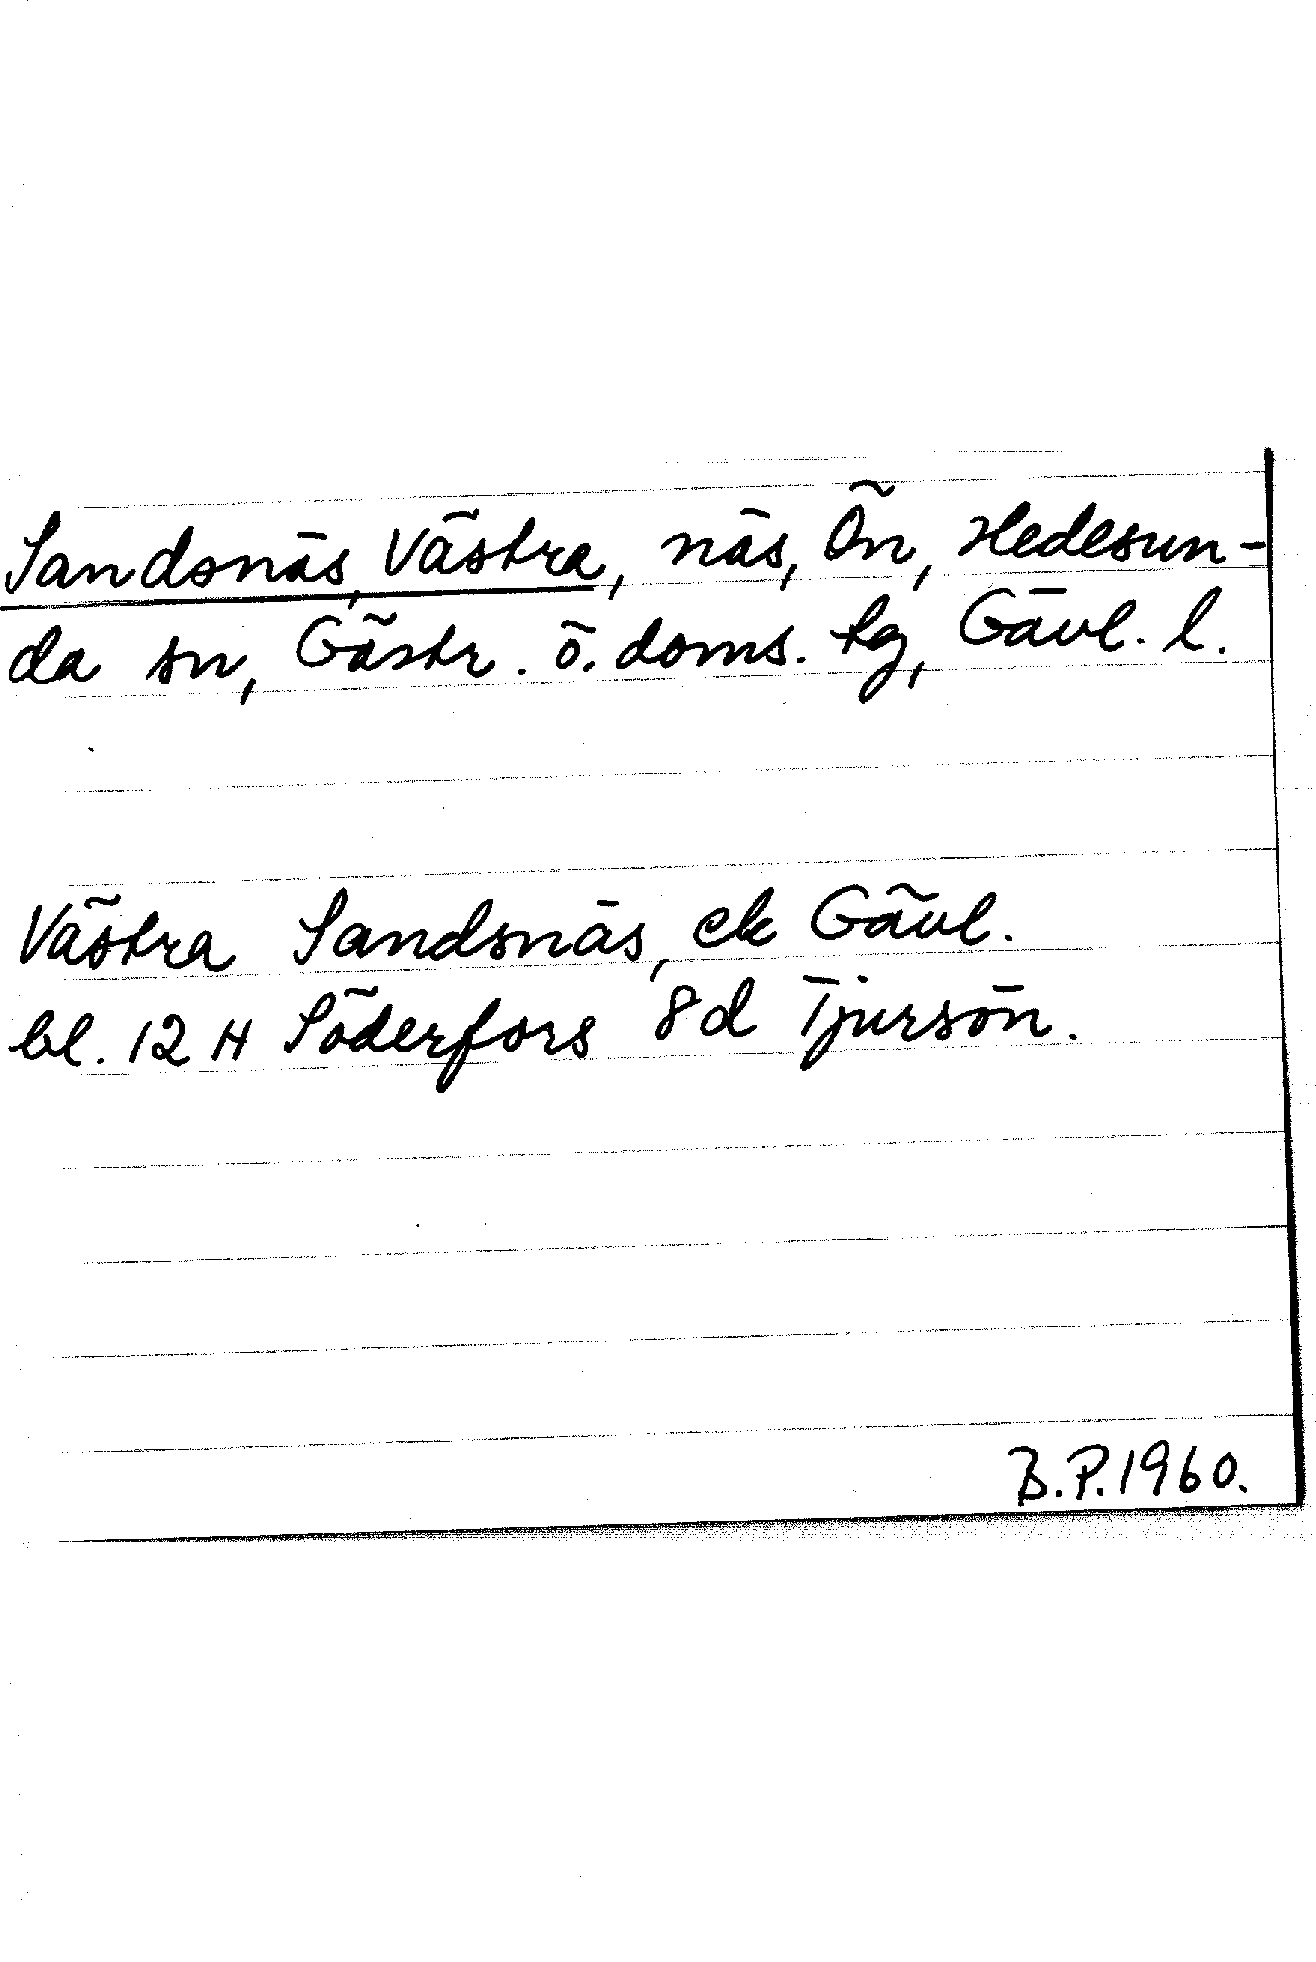 Sandsnäs, Västra, näs, Ön, Hedesun-
da sn, Gästr. ö. doms. tg, Gävl. l.
Västra Sandsnäs, ek Gävl.
bl. 12 H Söderfors 8d Tjursön.
B.P. 1960.